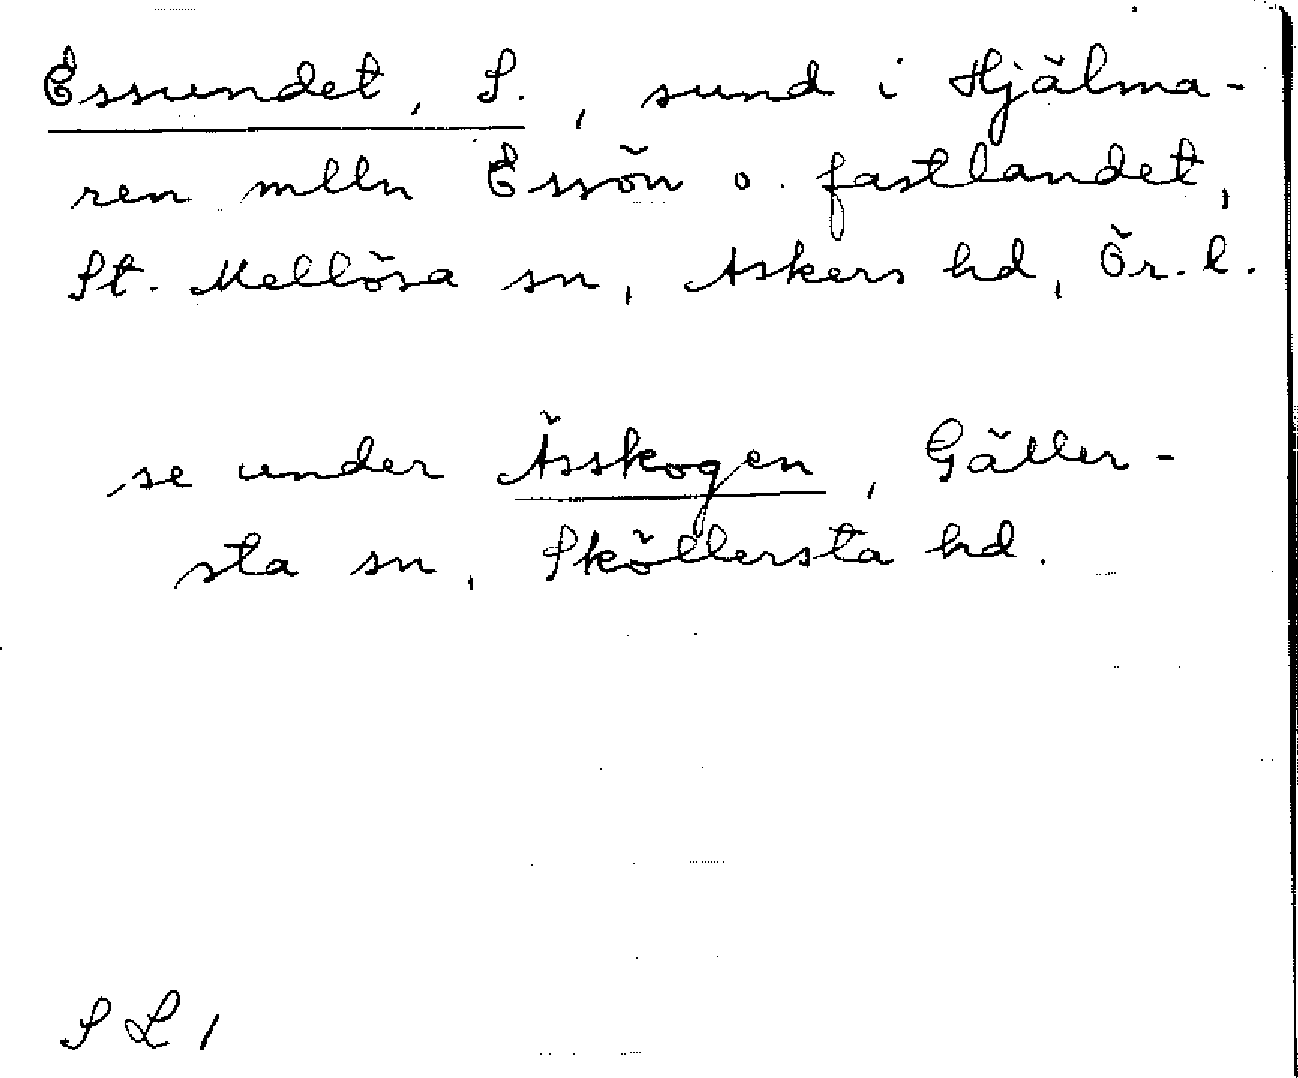 Essundet, S., sund i Hjälma-
ren mlln Essön o. fastlandet,
St. Mellösa sn, Askers hd, Ör. l.
se under Ässkogen, Gäller-
sta sn, Sköllersta hd.
SL 1